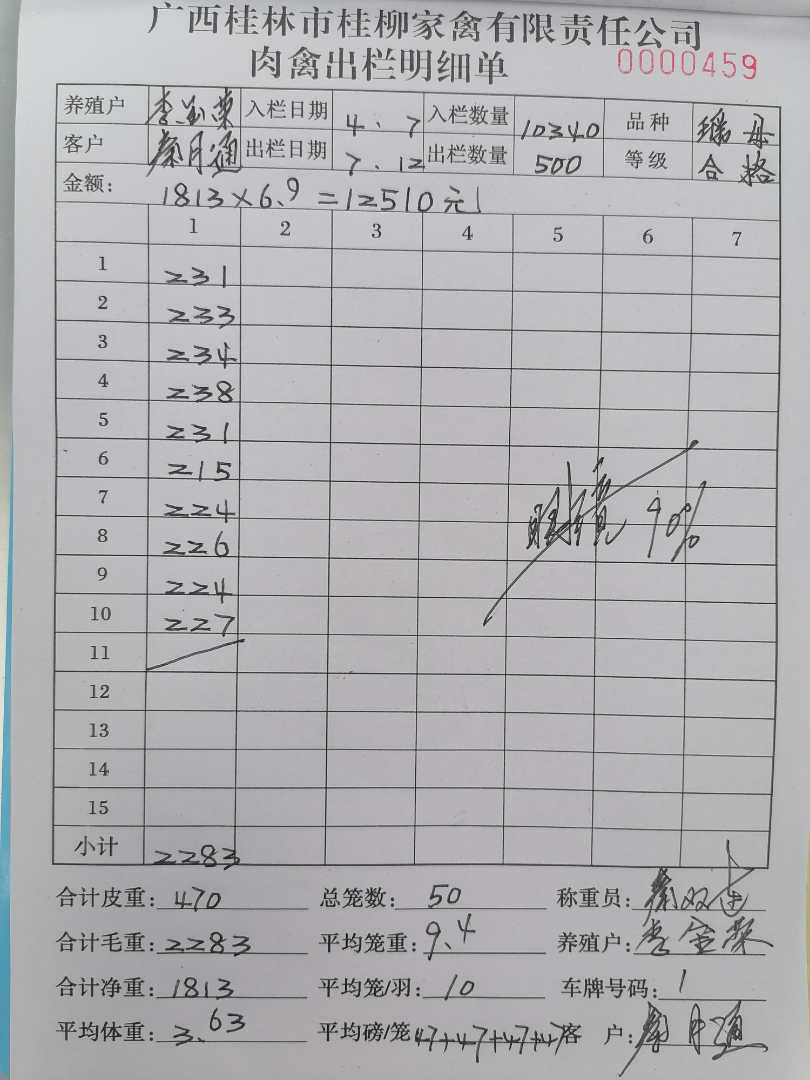 广西桂林市桂柳家禽有限责任公司
肉禽出栏明细单 0000459
养殖户 李金荣 入栏日期 4.7 入栏数量 10340 品种 瑶母
客户 秦月通 出栏日期 7.12 出栏数量 500 等级 合格
金额: 1813×6.9=12510元
1 2 3 4 5 6 7
1 231
2 233
3 234
4 238
5 231
6 215
7 224
8 226
9 224
10 227
11
12
13
14
15
90%
小计 2283
合计皮重: 470 总笼数: 50 称重员: 秦双
合计毛重: 2283 平均笼重: 9.4 养殖户: 李金荣
合计净重: 1813 平均笼/羽: 10 车牌号码: 1
平均体重: 3.63 平均磅/笼 47+47+47+47 客户: 秦月通